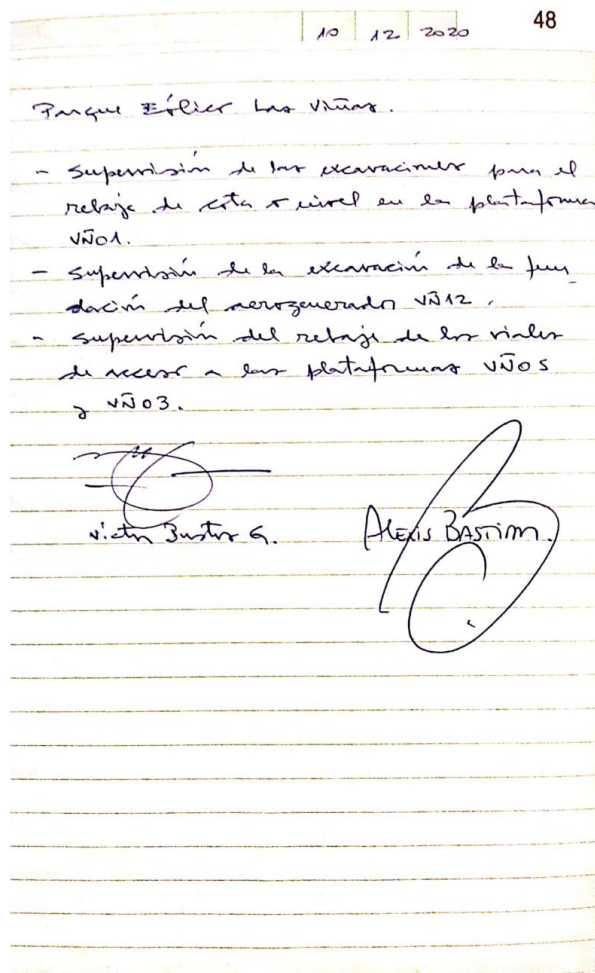 48
10 12 2020
Parque Eólico Las Viñas.
- Supervisión de las excavaciones para el
rebaje de cota o nivel en la plataforma
VÑ01.
- Supervisión de la excavación de la fun
dación del aerogenerador VÑ12.
- Supervisión del rebaje de los viales
de acceso a las plataformas VÑ05
y VÑ03.
Victor Bustos G. ALEXIS BASTIAN.